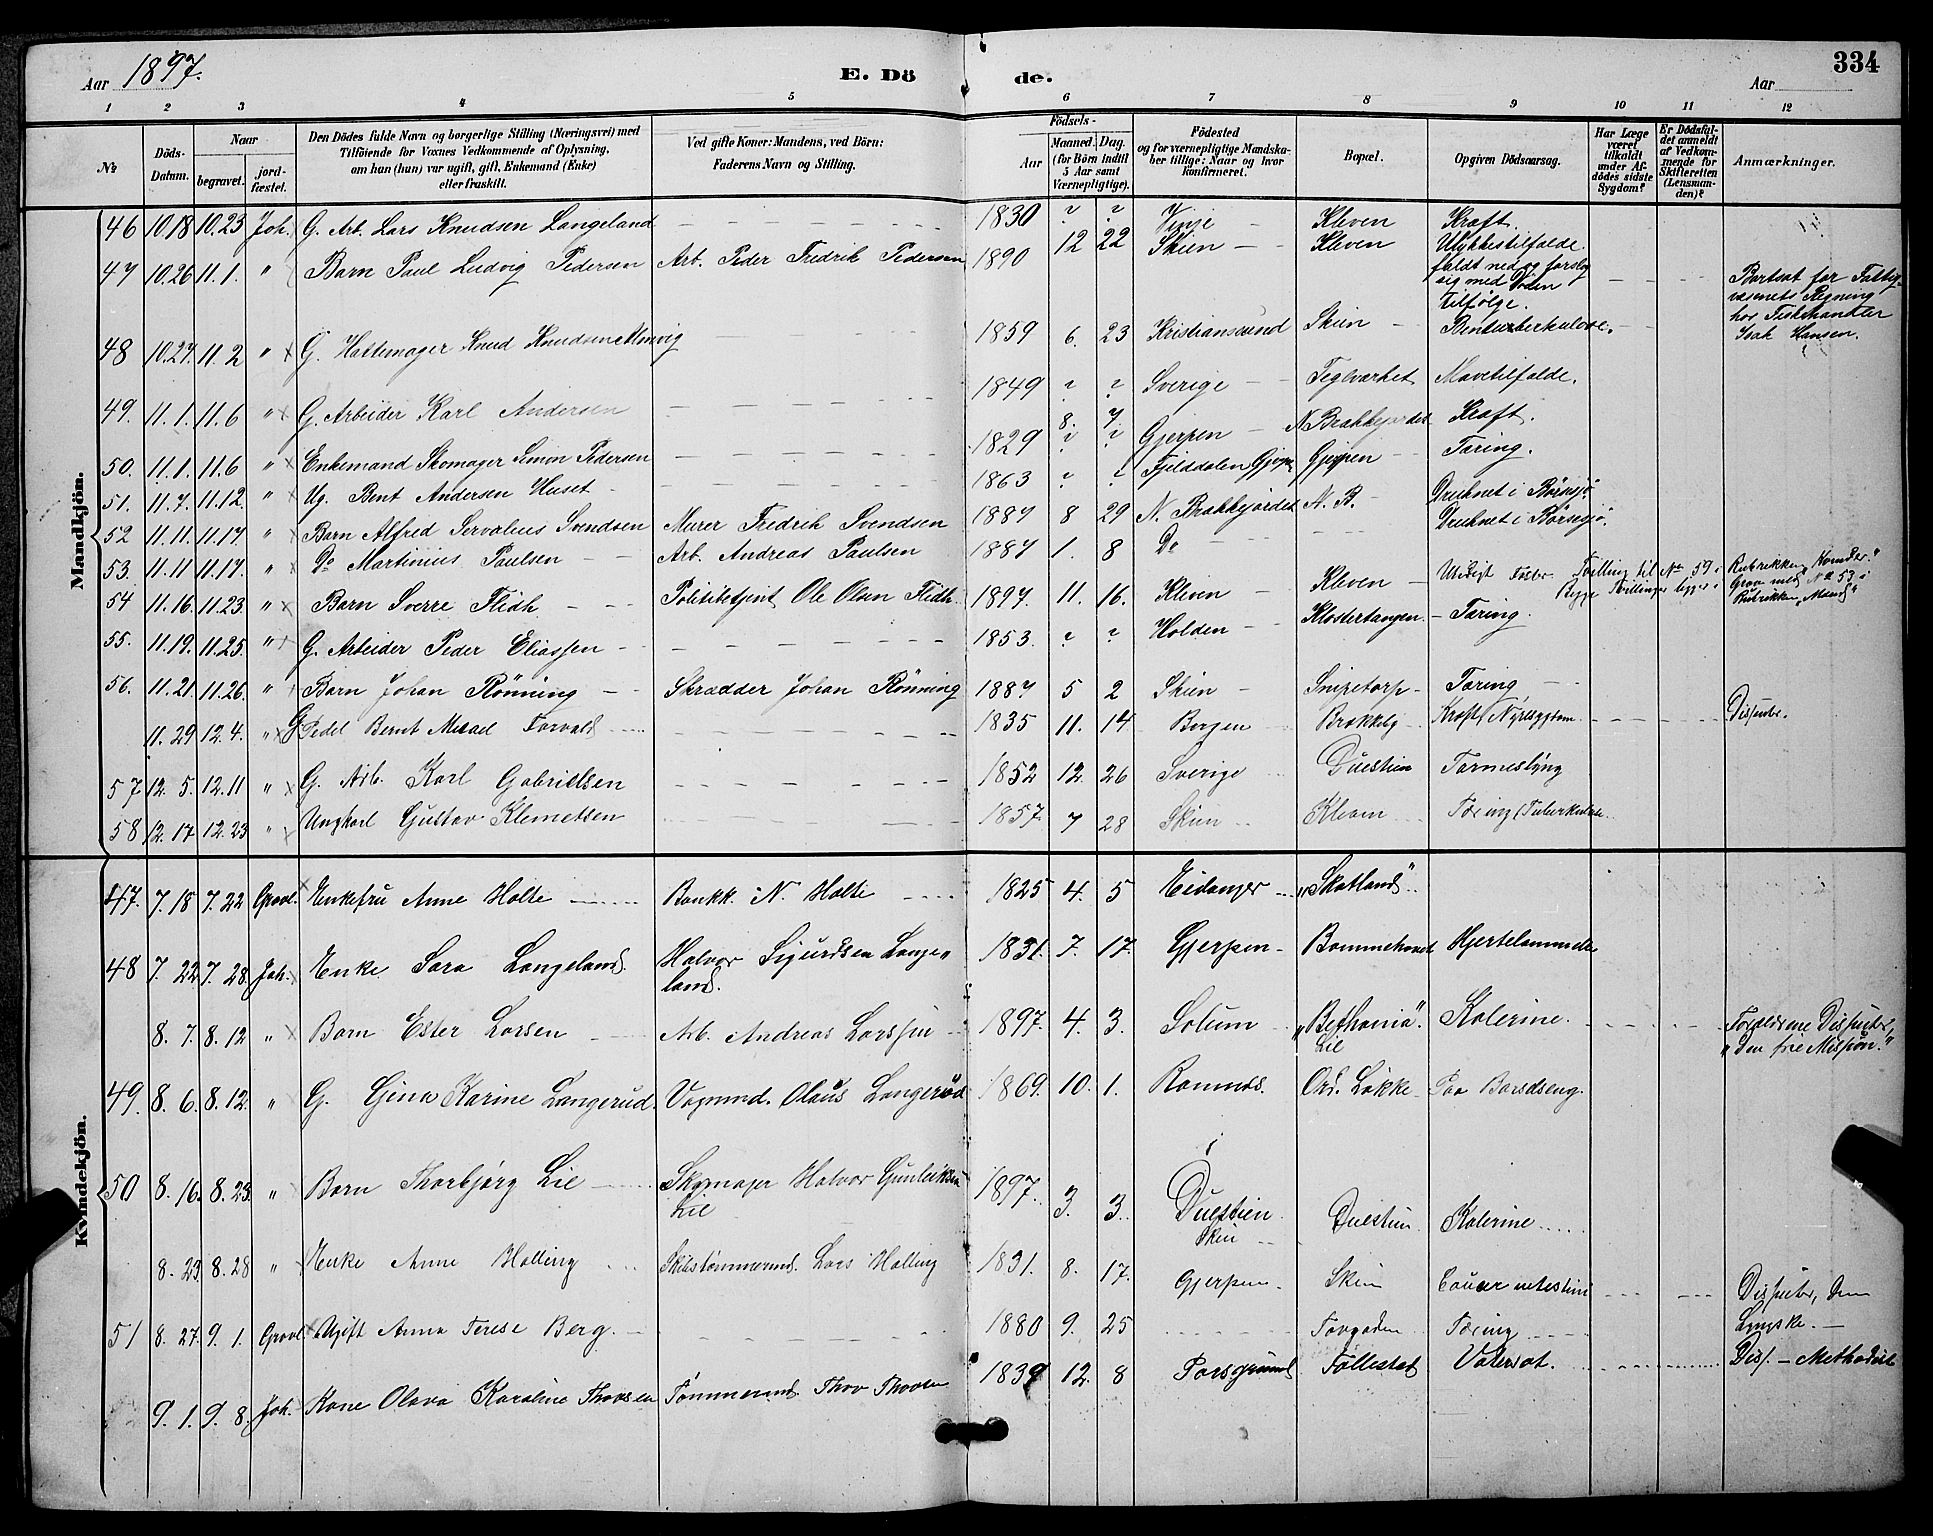 Aar 1897. E. Dö de. Aar 334
1 2 3 4 5 6 7 8 9 10 11 12
№ Döds-Datum. Naar begravet. jord-fæstet. Den Dödes fulde Navn og borgerlige Stilling (Næringsvei) med Tilföiende for Voxnes Vedkommende af Oplysning, om han (hun) var ugift, gift, Enkemand (Enke) eller fraskilt. Ved gifte Koner: Mandens, ved Börn: Faderens Navn og Stilling. Födsels- Aar Maaned. Dag. (for Börn indtil 5 Aar samt Værnepligtige). Födested og for værnepligtige Mandskaber tillige: Naar og hvor konfirmeret. Bopæl. Opgiven Dödsaarsag. Har Læge været tilkaldt under Afdödes sidste Sygdom? Er Dödsfaldet anmeldt af Vedkommende for Skifteretten (Lensmanden)? Anmærkninger.
Mandkjön.
46 10.18 10.23 Joh. G. Arb. Lars Knudsen Langeland 1830 ? ? Vinje Kleven Kræft.
47 10.26 11.1. " Barn Paul Ludvig Pedersen Arb. Peder Fredrik Pedersen 1890 12 22 Skien Kleven Ulykkestilfælde. faldt ned og forslog sig med Døden tilfølge. Bortsat for Fattigvæsenets Regning hos Fiskehandler Isak Hansen.
48 10.27 11.2 " G. Hattemager Knud Knudsen Almvig 1859 6. 23 Kristianssund Skien Bentuberkulose.
49. 11.1. 11.6 " G. Arbeider Karl Andersen 1849 ? ? Sverige Teglværket Mavetilfælde.
50. 11.1. 11.6 " Enkemand Skomager Simon Pedersen 1829 8. 7. Gjerpen N. Brækkejordet Kræft.
51. 11.7. 11.12. " Ug. Bent Andersen Huset 1863 ? ? Fjelddalen Gjerpen Gjerpen Tæring.
52 11.11. 11.17 " Barn Alfred Servalius Svendsen Murer Fredrik Svendsen 1887 8 29 N. Brækkejordet N. B. Druknet i Børsesjø.
53. 11.11 11.17. " Do Martinius Paulsen Arb. Andreas Paulsen 1887 1. 8 Do Druknet i Børsesjø.
54 11.16. 11.23. " Barn Sverre Flidh Politibetjent Ole Olsen Flidh. 1897. 11. 16. Kleven Kleven Utidigt Født Tvilling til No 59 i Rubrikken "Kvinder." Begge Tvillinger ligger i Grav med No 53 i Rubrikken "Mænd"
55. 11.19. 11.25. " G. Arbeider Peder Eliassen 1853. ? ? Holden Klostertangen Tæring.
56. 11.21 11.26. " Barn Johan Rönning Skrædder Johan Rönning 1887 5 2 Skien Snipetorp Tæring
11.29 12.4. " G Pedel Bernt Mikael Torvald 1835 11. 14 Bergen Brækkeby Kræft (Nyresygdom Dissenter.
57 12.5. 12.11 " G. Arb. Karl Gabrielsen 1852 12. 26 Sverige Duestien Tarmeslyng
58 12.17 12.23 " Ungkarl Gustav Klemetsen 1857. 7 28 Skien Kleven Tæring (Tuberkulose
Kvindekjön.
47. 7.18 7.22 Gravl. Enkefru Anne Holte Bankk. N. Holte 1825 4. 5 Eidanger "Skotland"
48 7.22 7.28. Joh. Enke Sara Langeland. Halvor Sigurdsen Langeland. 1831. 7. 17. Gjerpen Bommehovet Hjertelammelse
8.7. 8.12 " Barn Ester Larsen Arb. Andreas Larssen 1897. 4. 3. Solum "Bethania". Lie Kolerine. Forældrene Dissenter, "Den frie Mission."
49. 8.6. 8.12. " G. Gina Karine Langerud. Vognmd. Olaus Langerud 1869. 10. 1. Ramnæs. Ovr. Løkke Paa Barselseng.
50 8.16. 8.23. " Barn Thorbjørg Lie Skomager Halvor Gunleiksen Lie 1897. 3. 3. Duestien Skien Duestien Kolerine
8.23 8.28 " Enke Anne Halling Skibstømmermd. Lars Halling 1831. 8. 17. Gjerpen Skien Cancer intestini Dissenter, Den Lyngske.
51 8.27. 9.1. Gravl. Ugift Anna Terese Berg. 1880 9. 25 Torvgaden Tæring
9.1. 9.8. Joh. Kone Olava Karoline Thovsen Tømmermd. Thov Thovsen 1839 12. 8 Porsgrund Follestad Vatersot. Diss. - Methodist